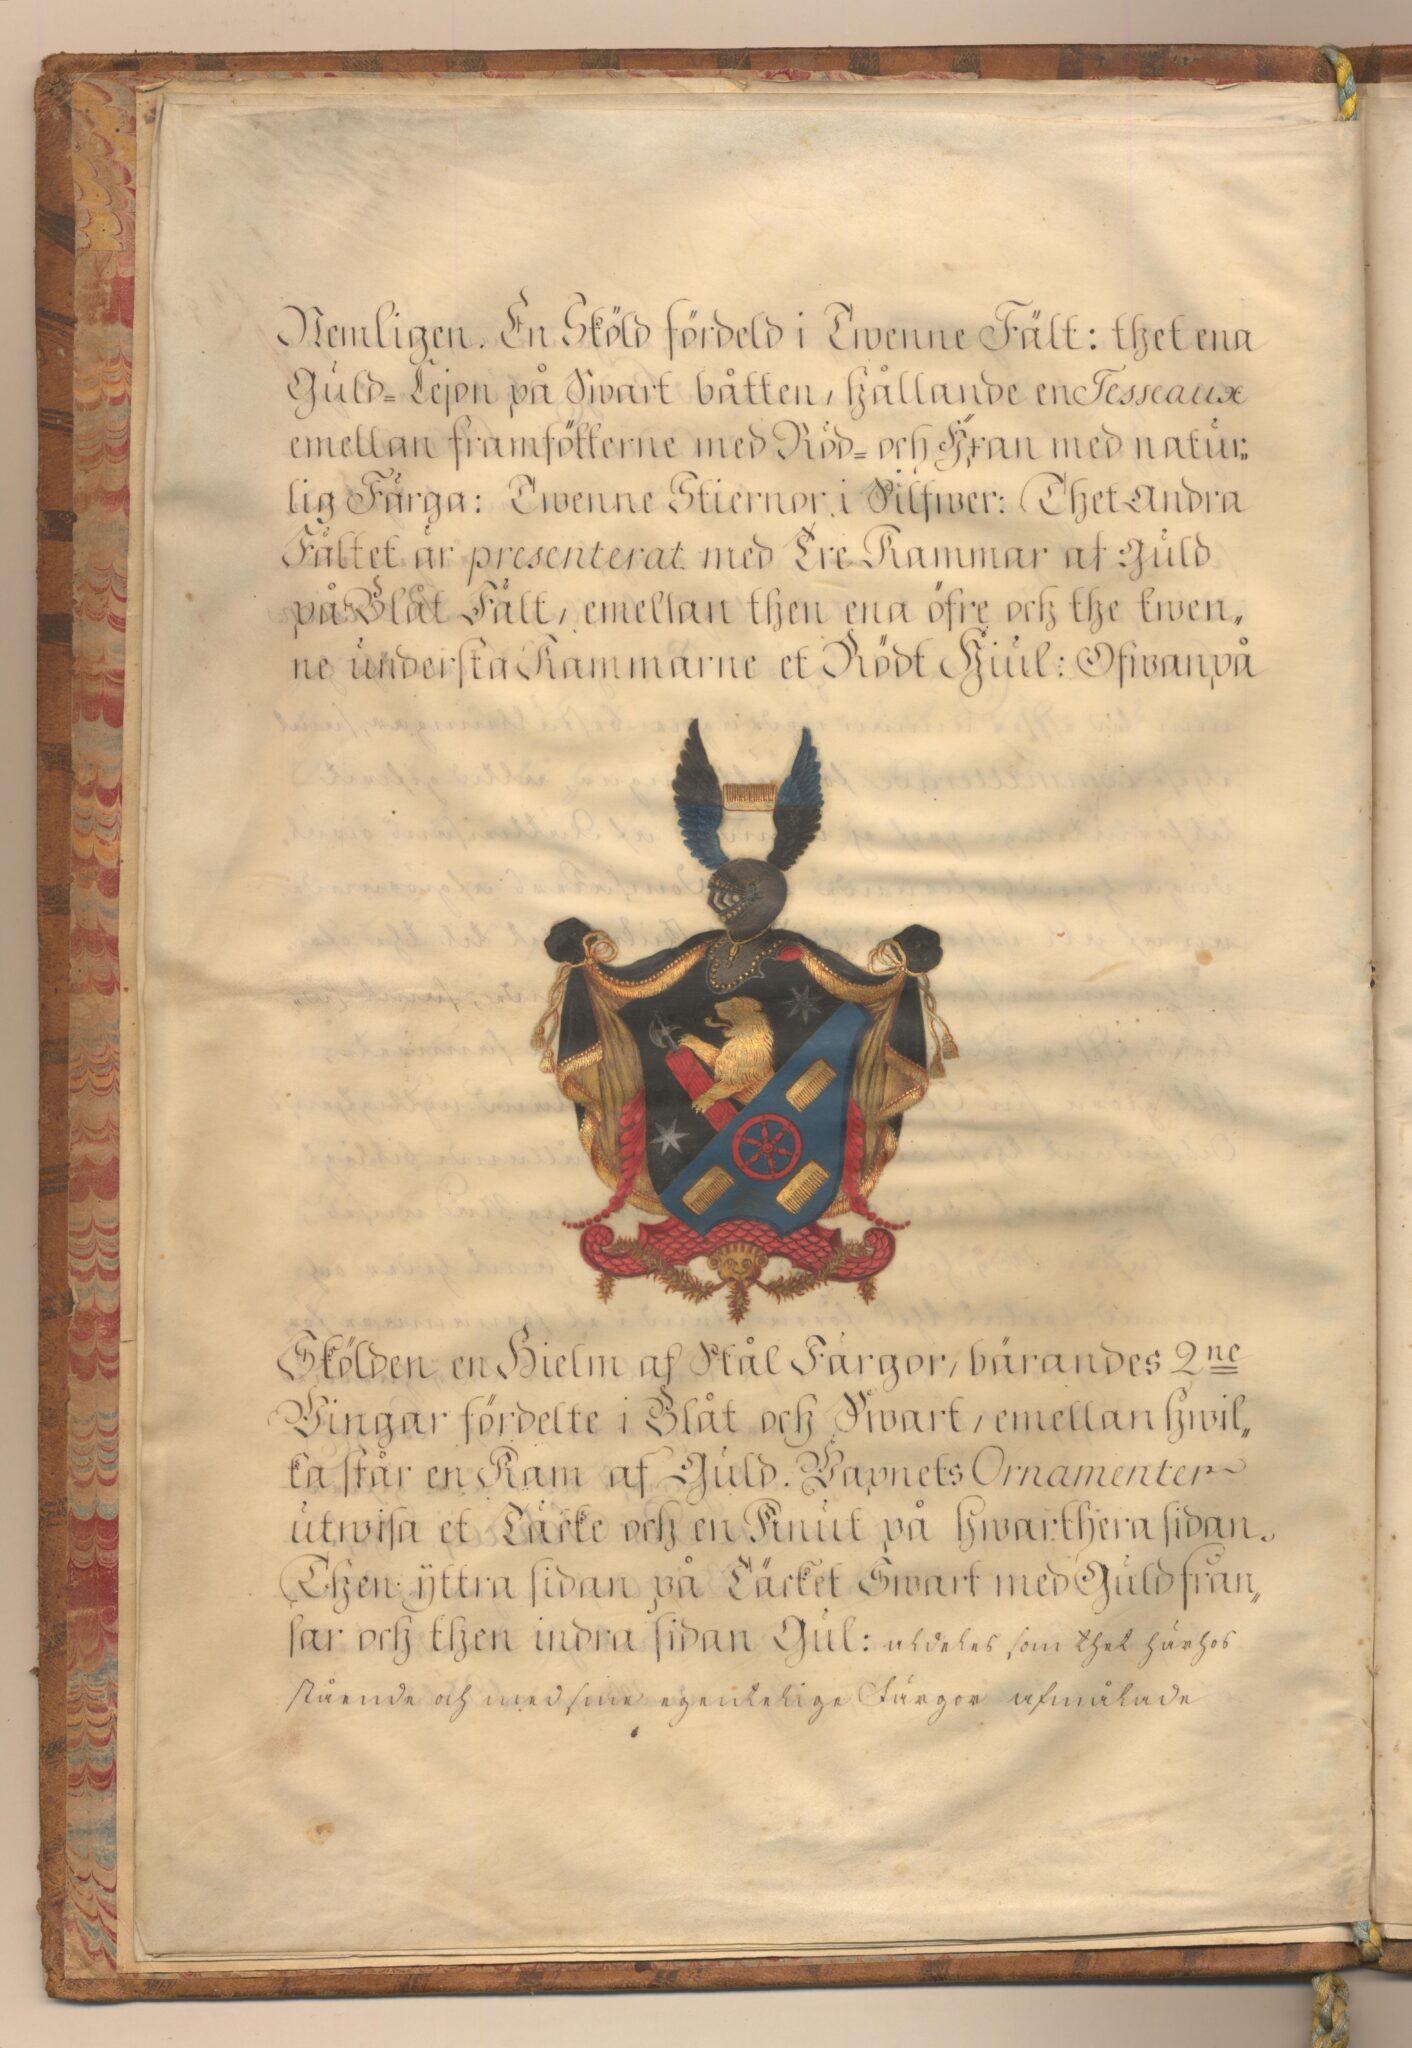 Nemligen. En Sköld fördeld i Twenne Fält: thet ena
Guld= Lejon på Swart båtten, hållande en Tesseaux
emellan framfötterne med Röd= och Yxan med natur„
lig Färga: Twenne Stiernor i Silfwer: Thet Andra
Fältet är presenterat med Tre Kammar af Guld
på Blåt Fält, emellan then ena öfre och the twen„
ne understa Kammarne et Rödt Hiul: Ofwanpå
Skölden en Hielm af Stål Färgor, bärandes 2ne
Vingar fördelte i Blåt och Swart, emellan hwil„
ka står en Kam af Guld. Vapnets Ornamenter
utwisa et Täcke och en Knut på hwarthera sidan.
Then yttra sidan på Täcket Swart med Guldfran„
sar och then indra sidan Gul: aldeles som thet härhos
stående och med sine egentelige Färgor afmålade